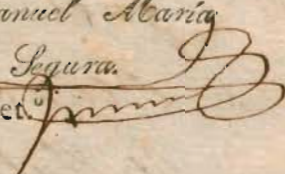 anuel María
Segura.
et.